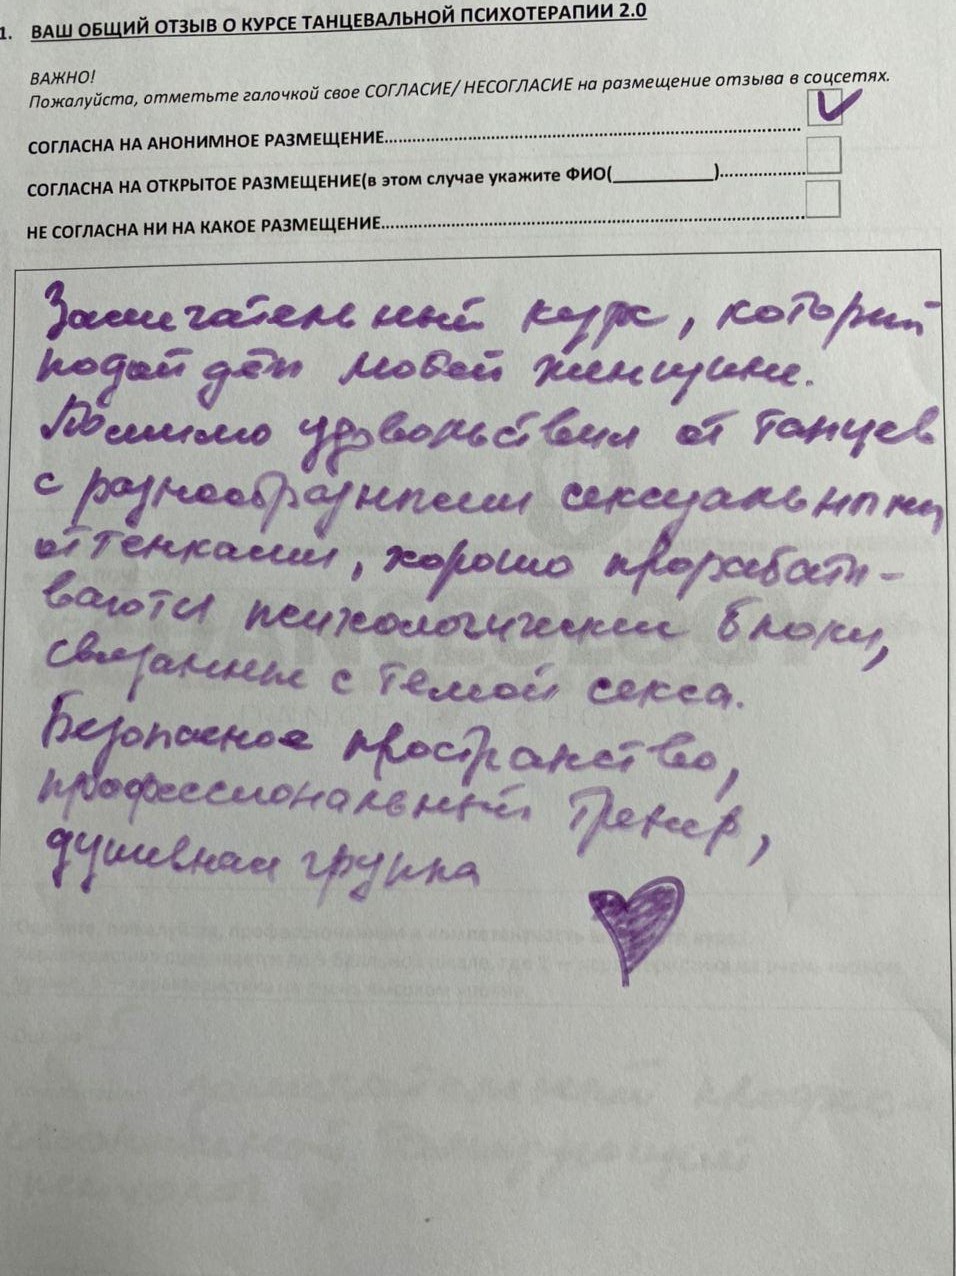 1. ВАШ ОБЩИЙ ОТЗЫВ О КУРСЕ ТАНЦЕВАЛЬНОЙ ПСИХОТЕРАПИИ 2.0
ВАЖНО!
Пожалуйста, отметьте галочкой свое СОГЛАСИЕ/ НЕСОГЛАСИЕ на размещение отзыва в соцсетях.
СОГЛАСНА НА АНОНИМНОЕ РАЗМЕЩЕНИЕ
СОГЛАСНА НА ОТКРЫТОЕ РАЗМЕЩЕНИЕ(в этом случае укажите ФИО(__________)
НЕ СОГЛАСНА НИ НА КАКОЕ РАЗМЕЩЕНИЕ
Замечательный курс, который
подойдёт любой женщине.
Помимо удовольствия от танцев
с разнообразными сексуальными
оттенками, хорошо прорабаты-
ваются психологические блоки,
связанные с темой секса.
Безопасное пространство,
профессиональный тренер,
душевная группа